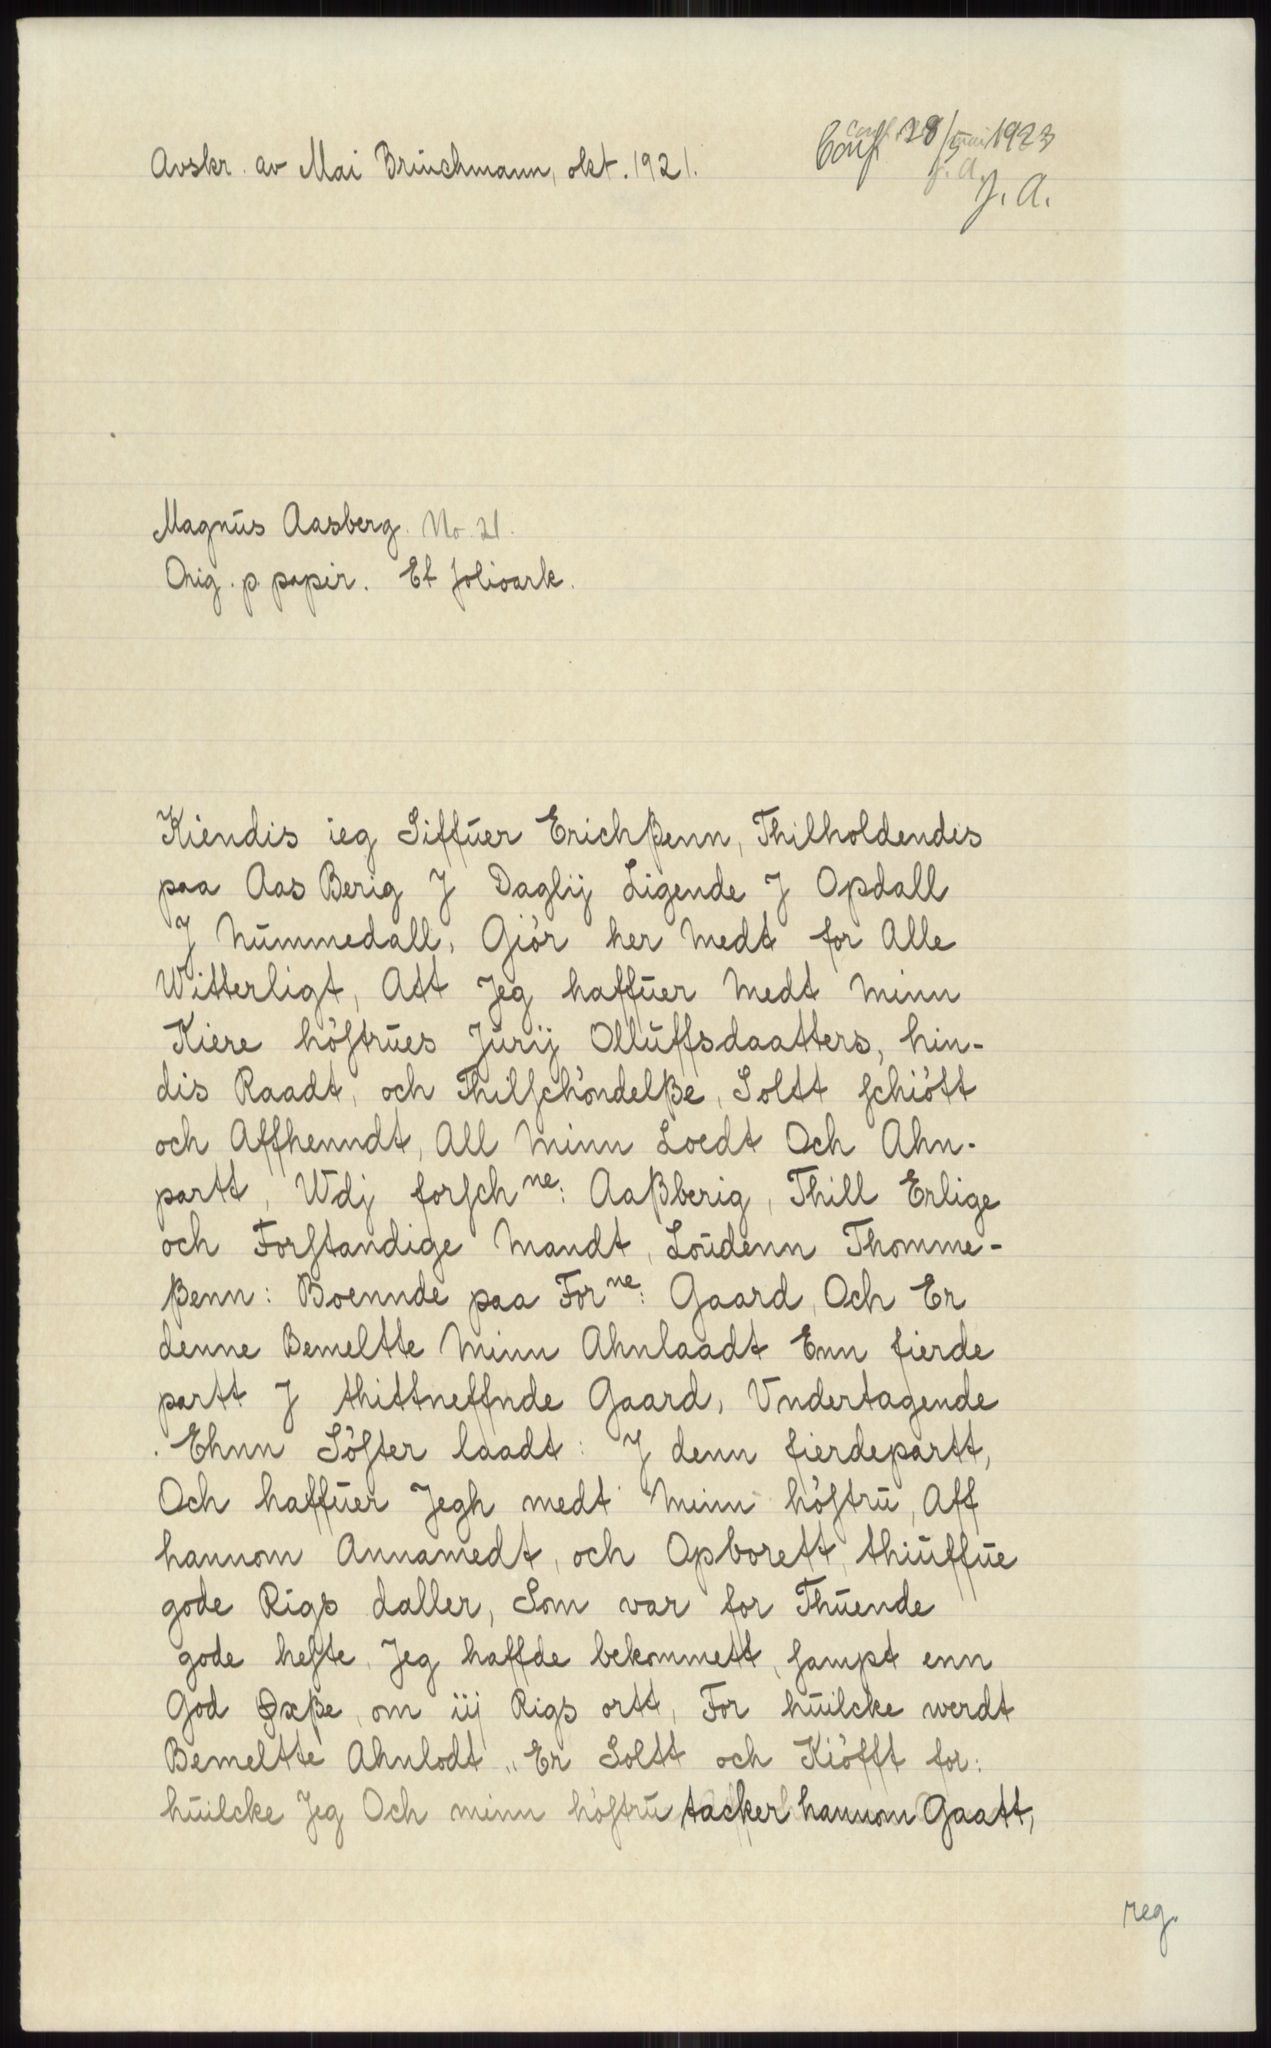 Avskr. av Mai Bruchmann, okt. 1921.
Conf. 28/5 1923
J. A.
Magnus Aasberg. No. 21.
Orig. p. papir. Et folioark.
Kiendis ieg Siffuer Erichßenn, Thilholdendis
paa Aas Berig J Daglij Ligende J Opdall
J Nummedall, Giör her Medt for Alle
Witterligt, Att Jeg haffuer Medt Minn
Kiere höstrues Jurij Olluffsdaatters, hin-
dis Raadt, och Thilschöndelße, Soltt schiött
och Affhenndt, All Minn Loedt Och Ahn-
partt, Wdj forsch ne: Aaßberig, Thill Erlige
och Forstandige Mandt, Loudenn Thomme-
ßenn: Boennde paa For ne: Gaard, Och Er
denne Bemeltte Minn Ahnlaadt Enn fierde
partt J thittneffnde Gaard, Vndertagende
. Ehnn Söster laadt: J denn fierdepartt,
Och haffuer Jegh medt Minn höstru, Aff
hannom Annamedt, och Opborett, thiuffue
gode Rigs daller, Som var for Thuende
gode heste, Jeg haffde bekommett, sampt enn
God Øxße, om iij Rigs ortt, For huilcke werdt
Bemeltte Ahnlodt „ Er Soltt och Kiöfft for:
huilcke Jeg Och minn höstru tacker hannom Gaatt,
reg.